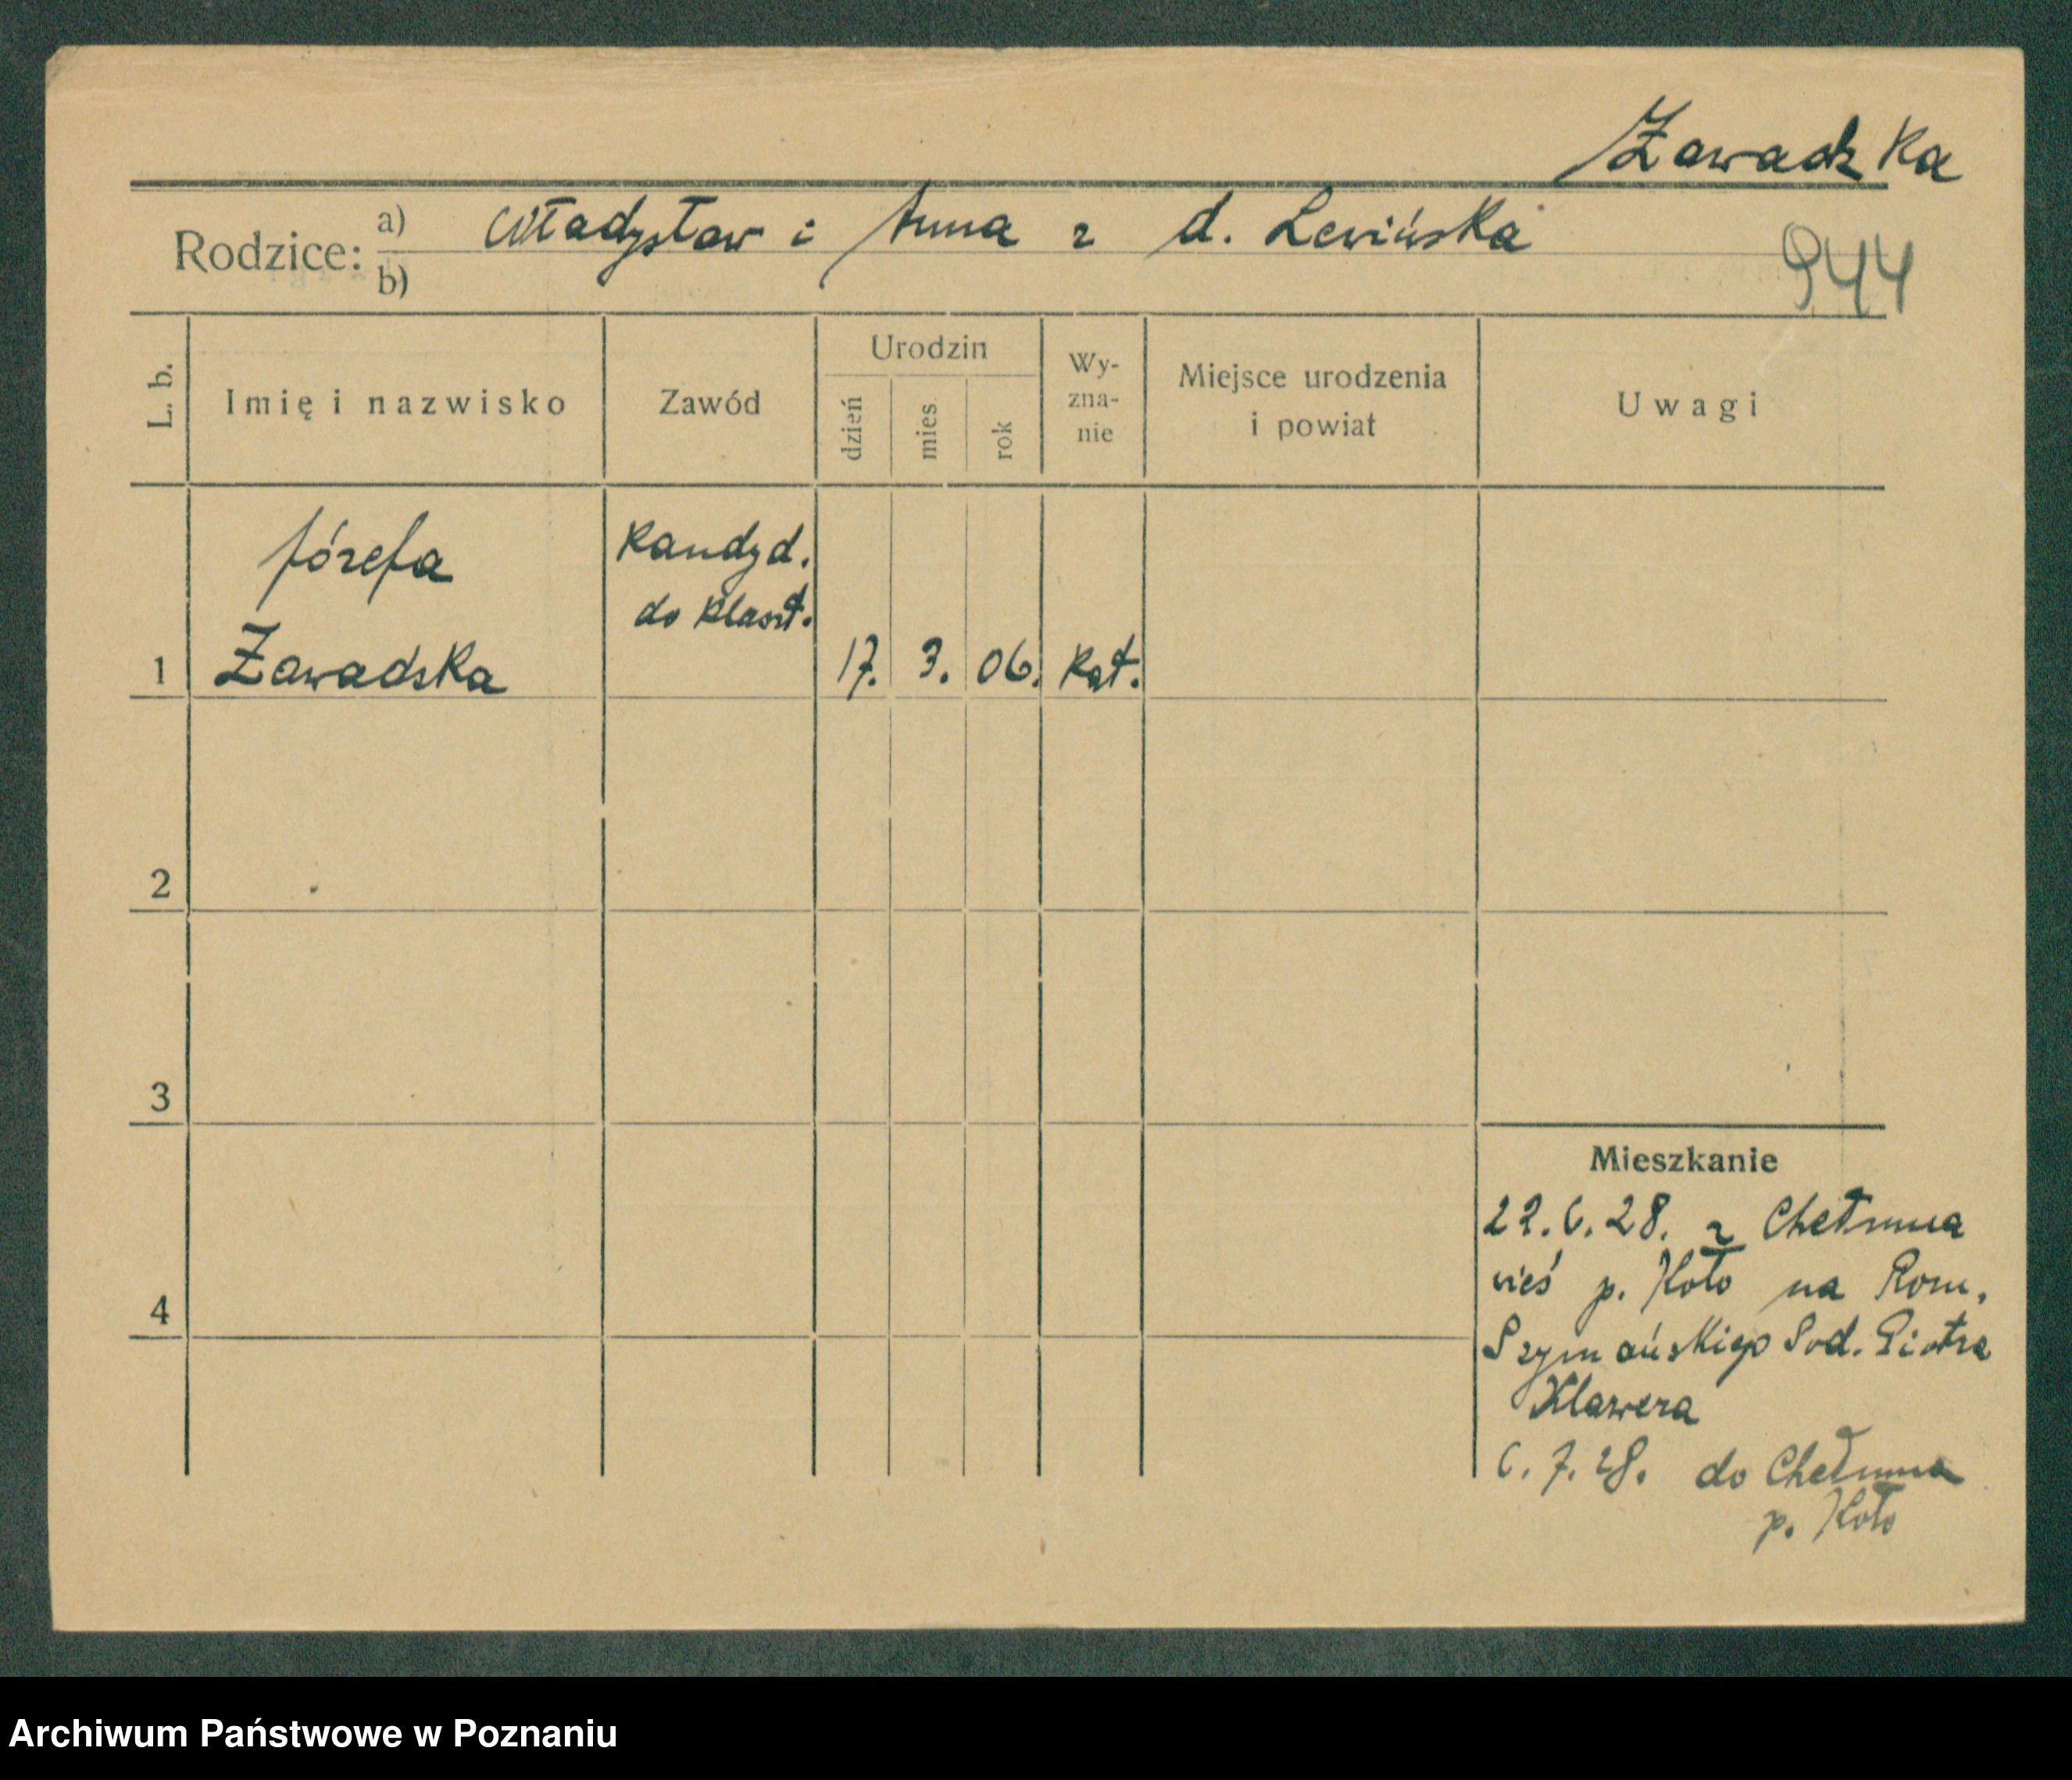 Zawadzka
Rodzice: a) Władysław i Anna z d. Lewińska
b)
944
L. b.
Imię i nazwisko
Zawód
Urodzin
dzień
mies
rok
Wy-
zna-
nie
Miejsce urodzenia
i powiat
Uwagi
Józefa
Kandyd.
do klaszt.
1 Zawadska 17. 3. 06. kat.
2
3
4
Mieszkanie
22.6.28. z Chełmna
wieś p. Koło na Rom.
Szymańskiego Sod. Piotra
Klawera
6.7.28. do Chełmna
p. Koło
Archiwum Państwowe w Poznaniu